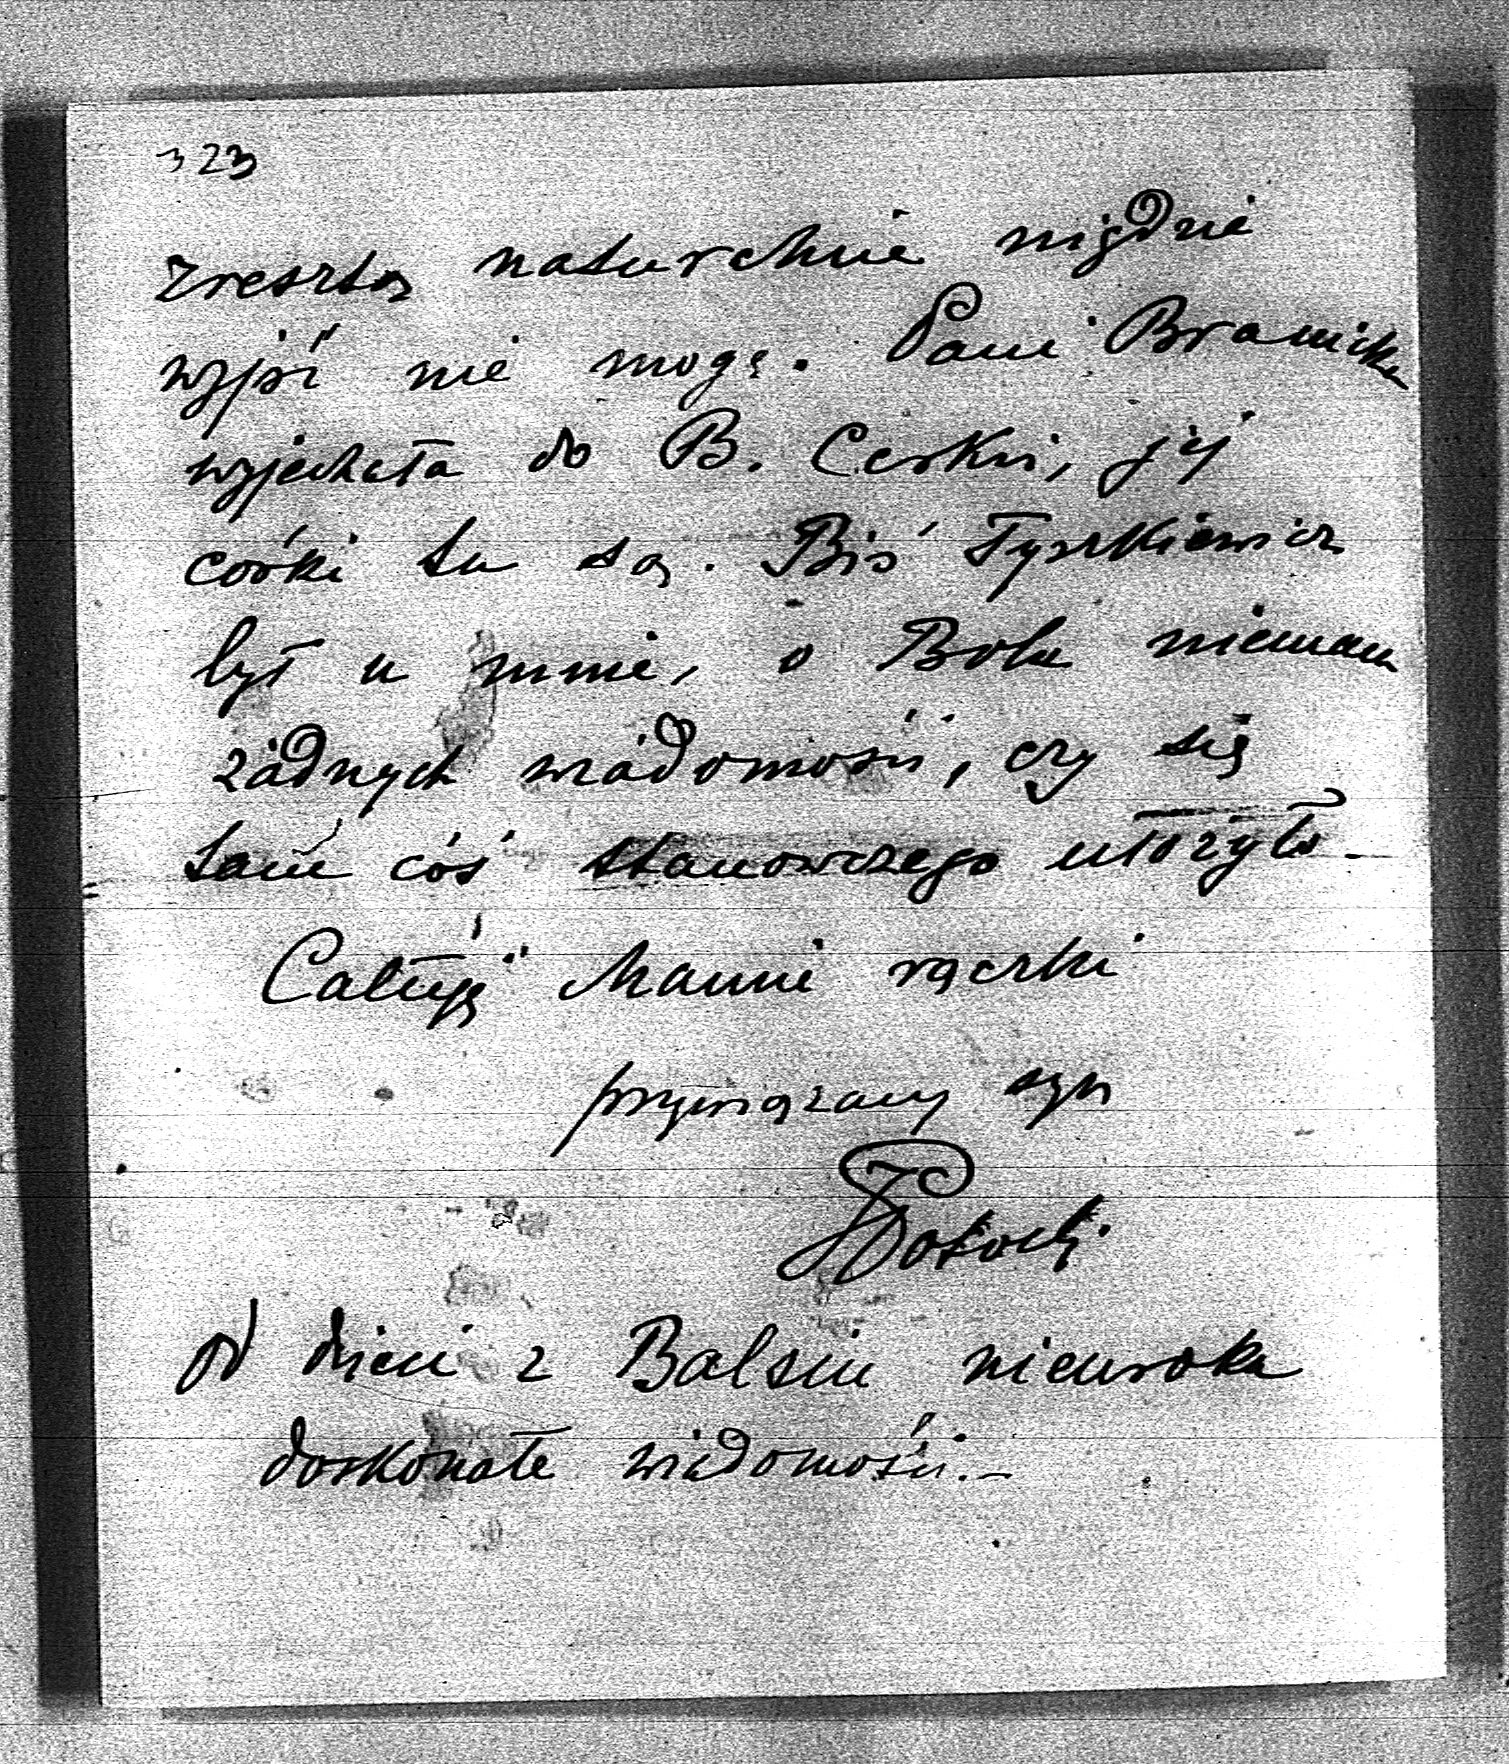 323
zresztą naturalnie nigdzie
wyjść nie mogę. Pani Branicka
wyjechała do B. Cerkwi, jej
córki tu są. Biś Tyszkiewicz
był u mnie, o Bola niemam
żadnych wiadomości, czy się
tam coś stanowczego ułożyło.
Całuję Mamie rączki
przywiązany syn
JPotocki
Od dzieci z Balsiu nieuroka
doskonałe wiadomości.—